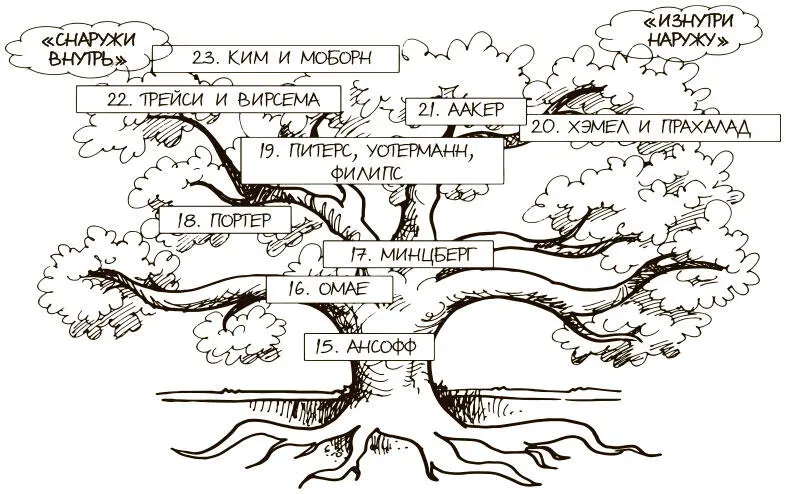 «СНАРУЖИ
ВНУТРЬ»
«ИЗНУТРИ
НАРУЖУ»
23. КИМ И МОБОРН
22. ТРЕЙСИ И ВИРСЕМА
21. ААКЕР
20. ХЭМЕЛ И ПРАХАЛАД
19. ПИТЕРС, УОТЕРМАНН,
ФИЛИПС
18. ПОРТЕР
17. МИНЦБЕРГ
16. ОМАЕ
15. АНСОФФ